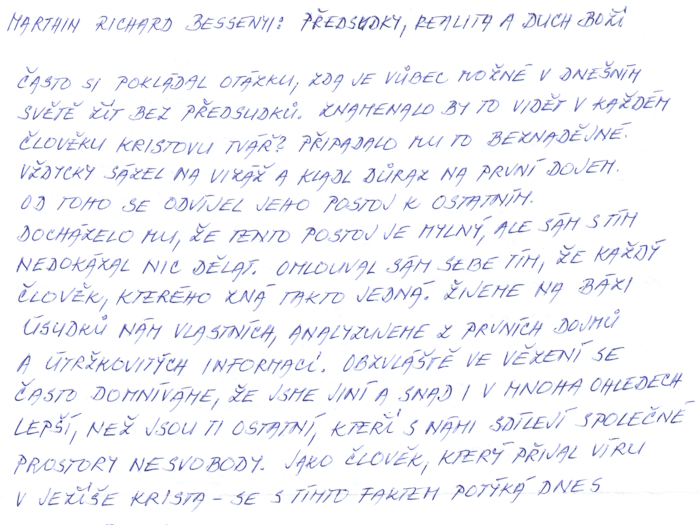 MARTHIN RICHARD BESSENYI: PŘEDSUDKY, REALITA A DUCH BOŽÍ
ČASTO SI POKLÁDAL OTÁZKU, ZDA JE VŮBEC MOŽNÉ V DNEŠNÍM
SVĚTĚ ŽÍT BEZ PŘEDSUDKŮ. ZNAMENALO BY TO VIDĚT V KAŽDÉM
ČLOVĚKU KRISTOVU TVÁŘ? PŘIPADALO MU TO BEZNADĚJNÉ.
VŽDYCKY SÁZEL NA VIZÁŽ A KLADL DŮRAZ NA PRVNÍ DOJEM.
OD TOHO SE ODVÍJEL JEHO POSTOJ K OSTATNÍM.
DOCHÁZELO MU, ŽE TENTO POSTOJ JE MYLNÝ, ALE SÁM S TÍM
NEDOKÁZAL NIC DĚLAT. OMLOUVAL SÁM SEBE TÍM, ŽE KAŽDÝ
ČLOVĚK, KTERÉHO ZNÁ TAKTO JEDNÁ. ŽIJEME NA BÁZI
ÚSUDKŮ NÁM VLASTNÍCH, ANALYZUJEME Z PRVNÍCH DOJMŮ
A ÚTRŽKOVITÝCH INFORMACÍ. OBZVLÁŠTĚ VE VĚZENÍ SE
ČASTO DOMNÍVÁME, ŽE JSME JINÍ A SNAD I V MNOHA OHLEDECH
LEPŠÍ, NEŽ JSOU TI OSTATNÍ, KTEŘÍ S NÁMI SDÍLEJÍ SPOLEČNÉ
PROSTORY NESVOBODY. JAKO ČLOVĚK, KTERÝ PŘIJAL VÍRU
V JEŽÍŠE KRISTA - SE S TÍMTO FAKTEM POTÝKÁ DNES